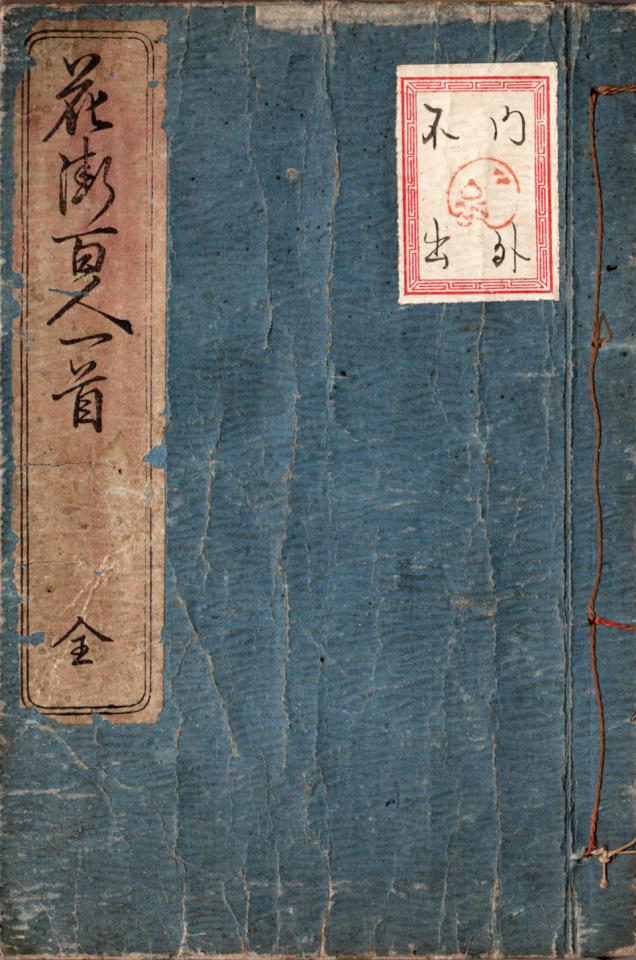 門外
不出
花街百人一首
全